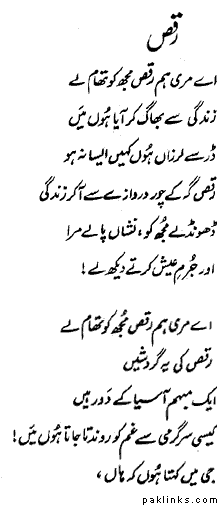 رقص
اے مری ہم رقص مجھ کو تھام لے
زندگی سے بھاگ کر آیا ہوں میں
ڈر سے لرزاں ہوں کہیں ایسا نہ ہو
رقص گہ کے چور دروازے سے آکر زندگی
ڈھونڈ لے مجھ کو، نشاں پالے مرا
اور جرمِ عیش کرتے دیکھ لے!
اے مری ہم رقص مجھ کو تھام لے
رقص کی یہ گردشیں
ایک مبہم آسیا کے دَور ہیں
کیسی سرگرمی سے غم کو روندتا جاتا ہوں میں!
جی میں کہتا ہوں کہ ہاں،
paklinks.com